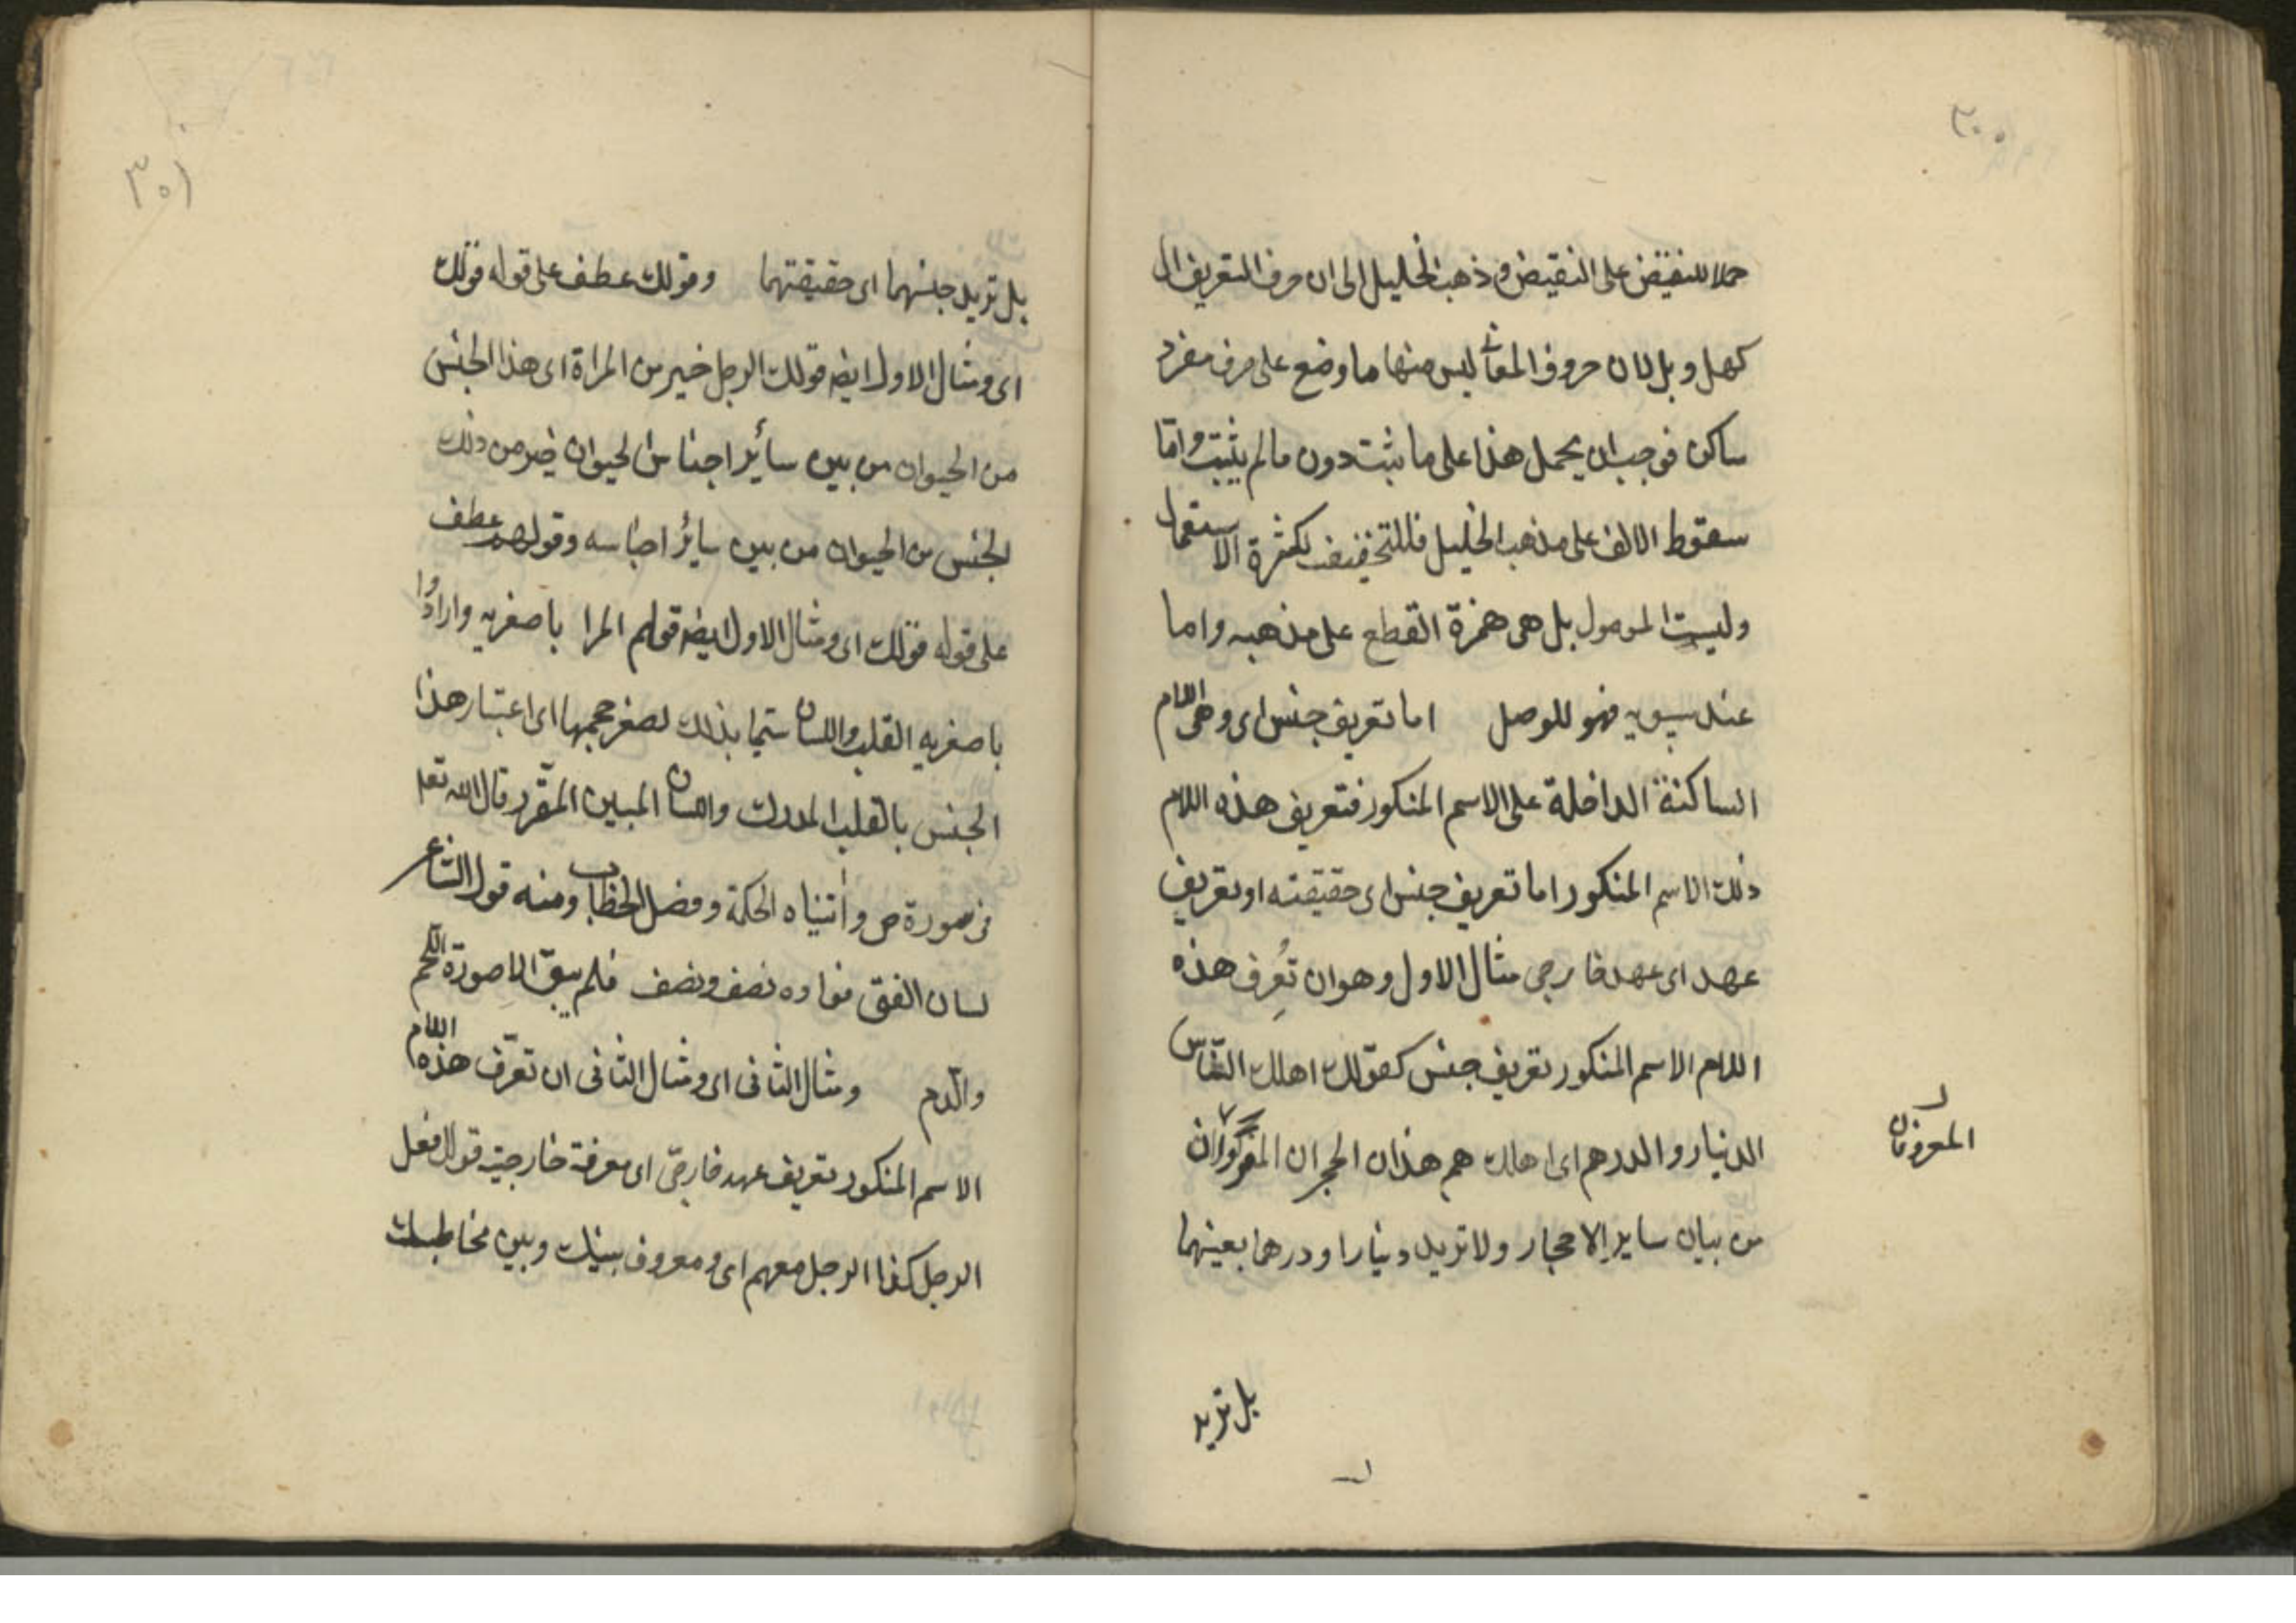 ٣٠٠
حملا للنقيض على النقيض وذهب الخليل الى ان حرف التعريف ال
كهل وبل لان حروف المعانى ليس منها ما وضع على حرف مفرد
ساكن فوجب ان يحمل هذا على ما يثبت دون ما لم يثبت واما
سقوط الالف على مذهب الخليل فللتخفيف لكثرة الاستعمال
وليست الموصول بل هى همزة القطع على مذهبه واما
عند سيبويه فهو للوصل اما تعريف جنس اى وهى اللام
الساكنة الداخلة على الاسم المنكور فتعريف هذه اللام
ذلك الاسم المنكور اما تعريف جنس اى حقيقته او تعريف
عهد اى عهد خارجى مثال الاول وهو ان تُعرِف هذه
اللام الاسم المنكور تعريف جنس كقولك اهلك النّاس
الدينار والدرهم اى اهلك هم هذان الحجران
المعروفان
من بيان ساير الاحجار ولا تريد دينارا ودرهما بعينهما
بل تريد
٣٠١
بل تريد جنسهما اى حقيقتهما وقولك عطف على قوله قولك
اى ومثال الاول ايضه قولك الرجل خير من المراة اى هذا الجنس
من الحيوان من بين سائر اجناس الحيوان خير من ذلك
الجنس من الحيوان من بين سائر اجناسه وقولهم عطف
على قوله قولك اى ومثال الاول ايضه قولهم المرا باصغريه وارادوا
باصغريه القلب واللسان سميا بذلك لصغر حجمهما اى اعتبار هذا
الجنس بالقلب المدرك واللسان المبين المقرر قال الله تعا
فى سورة ص واتيناه الحكمة وفصل الخطاب ومنه قول الشاعر
لسان الفتى نصف ونصف فؤاده فلم يبق الا صورة اللحم
والدم ومثال الثانى اى ومثال الثانى ان تعرّف هذه اللام
الاسم المنكور تعريف عهد خارجىّ اى معرفة خارجية قولك فعل
الرجل كذا الرجل معهم اى ومعروف بينك وبين مخاطبك